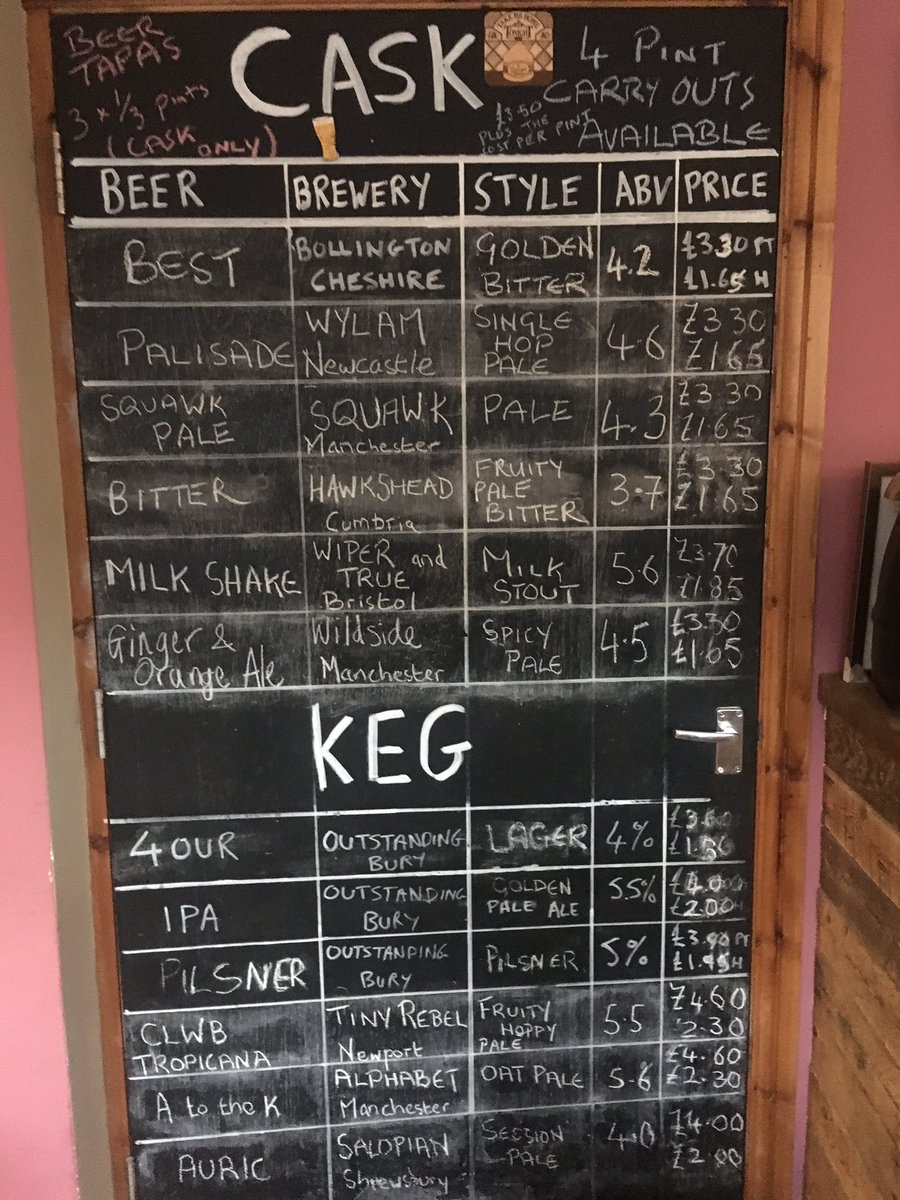 BEER
TAPAS
3 x 1/3 pints
(CASK ONLY)
CASK
4 PINT
CARRY OUTS
AVAILABLE
£3.50
PLUS THE
COST PER PINT
BEER BREWERY STYLE ABV PRICE
BEST
BOLLINGTON
CHESHIRE
GOLDEN
BITTER
4.2
£3.30 PT
£1.65 H
PALISADE
WYLAM
Newcastle
SINGLE
HOP
PALE
4.6
£3.30
£1.65
SQUAWK
PALE
SQUAWK
Manchester
PALE
4.3
£3.30
£1.65
BITTER
HAWKSHEAD
Cumbria
FRUITY
PALE
BITTER
3.7
£3.30
£1.65
MILK SHAKE
WIPER and
TRUE
Bristol
MILK
STOUT
5.6
£3.70
£1.85
Ginger &
Orange Ale
Wildside
Manchester
SPICY
PALE
4.5
£3.30
£1.65
KEG
4OUR
OUTSTANDING
BURY
LAGER
4%
IPA
OUTSTANDING
BURY
GOLDEN
PALE ALE
5.5%
£4.00
£2.00H
PILSNER
OUTSTANDING
BURY
PILSNER
5%
£3.90 PT
£1.95H
CLWB
TROPICANA
TINY REBEL
Newport
FRUITY
HOPPY
PALE
5.5
£4.60
2.30
A to the K
ALPHABET
Manchester
OAT PALE
5.6
£4.60
£2.30
AURIC
SALOPIAN
Shrewsbury
SESSION
PALE
4.0
£4.00
£2.00